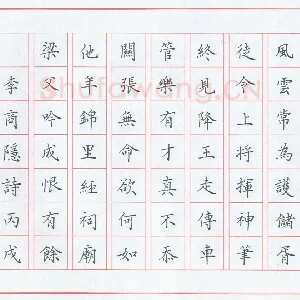 風雲常為護儲胥
徒令上將揮神筆
終見降王走傳車
管樂有才真不忝
關張無命欲何如
他年錦里經祠廟
梁父吟成恨有餘
李商隱詩丙戌
Shufawang.CN